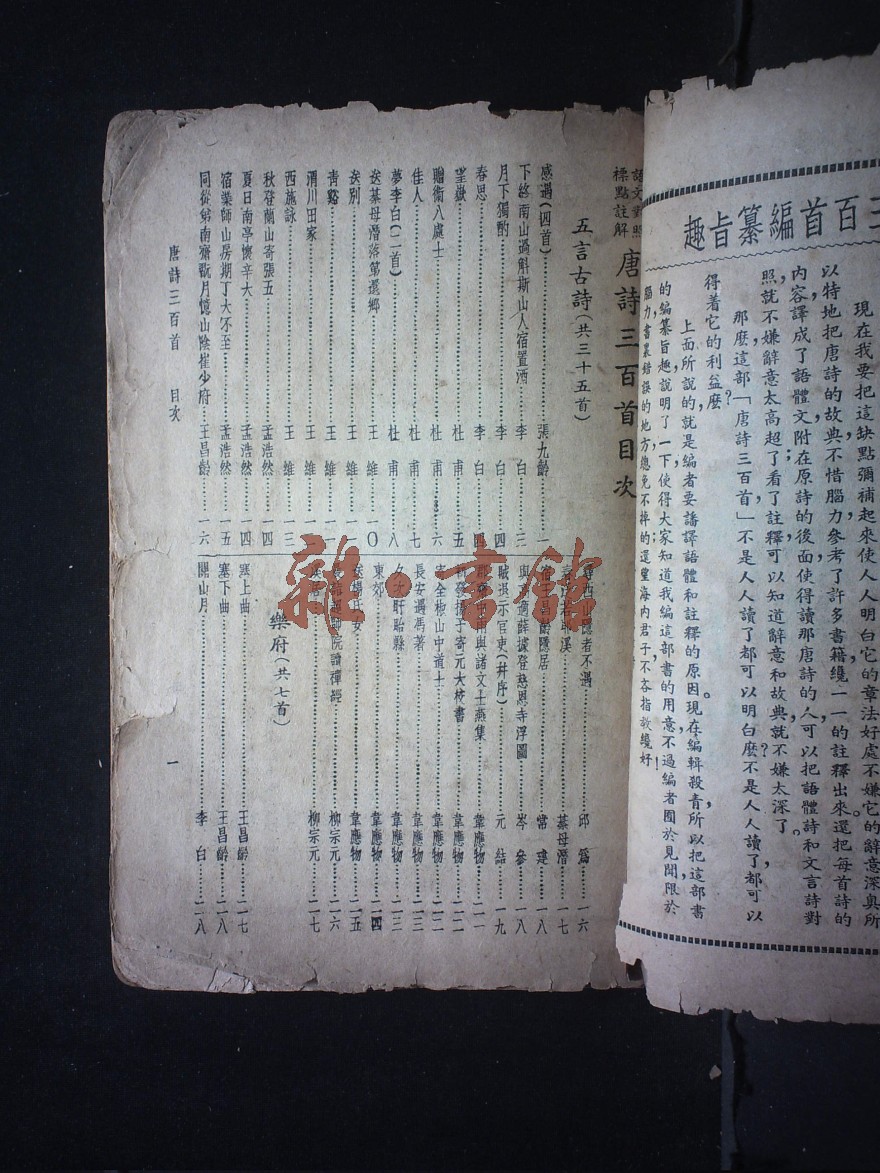 三百首編纂旨趣
現在我要把這缺點彌補起來使人人明白它的章法好處不嫌它的辭意深奧所
以特地把唐詩的故典不惜腦力參考了許多書籍纔一一的註釋出來還把每首詩的
內容譯成了語體文附在原詩的後面使得讀那唐詩的人可以把語體詩和文言詩對
照就不嫌辭意太高超了看了註釋可以知道辭意和故典就不嫌太深了。
那麼這部「唐詩三百首」不是人人讀了都可以明白麼不是人人讀了都可以
得着它的利益麼?
上面所說的就是編者要譒譯語體和註釋的原因。現在編輯殺青所以把這部書
的編纂旨趣說明了一下使得大家知道我編這部書的用意不過編者囿於見聞限於
腦力書裏錯誤的地方總免不掉的還望海內君子不吝指教纔好!
語文對照
標點註解
唐詩三百首目次
五言古詩(共三十五首)
感遇(四首)……張九齡……一
下終南山過斛斯山人宿置酒……李白……三
月下獨酌……李白……四
春思……李白……四
望嶽……杜甫……五
贈衛八處士……杜甫……六
佳人……杜甫……七
夢李白(二首)……杜甫……八
送綦母潛落第還鄉……王維……一〇
送別……王維……一一
青谿……王維……一一
渭川田家……王維……一二
西施詠……王維……一三
秋登蘭山寄張五……孟浩然……一四
夏日南亭懷辛大……孟浩然……一四
宿業師山房期丁大不至……孟浩然……一五
同從弟南齋翫月憶山陰崔少府……王昌齡……一六
尋西山隱者不遇……邱為……一六
溪……綦母潛……一七
隱居……常建……一八
與高適薛據登慈恩寺浮圖……岑參……一八
賊退示官吏(并序)……元結……一九
與諸文士燕集……韋應物……二一
初發揚子寄元大校書……韋應物……二二
寄全椒山中道士……韋應物……二二
長安遇馮著……韋應物……二三
夕次盱眙縣……韋應物……二三
東郊……韋應物……二四
送楊氏女……韋應物……二五
院讀禪經……柳宗元……二六
溪居……柳宗元……二七
樂府(共七首)
塞上曲……王昌齡……二七
塞下曲……王昌齡……二八
關山月……李白……二八
唐詩三百首 目次
一
雜·書館